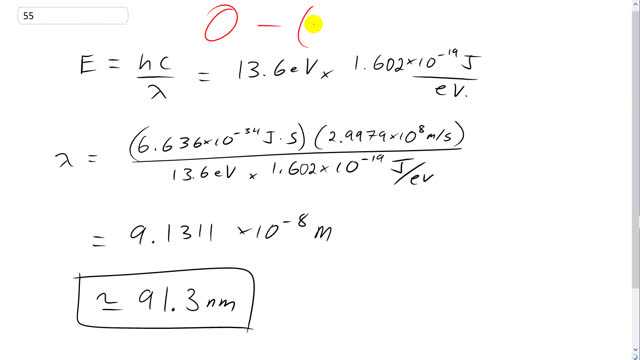 55
0 - (
E = hc/λ = 13.6eV × 1.602×10^-19 J/eV.
λ = (6.636×10^-34 J·s)(2.9979×10^8 m/s) / 13.6eV × 1.602×10^-19 J/eV
= 9.1311 ×10^-8 m
≃ 91.3nm